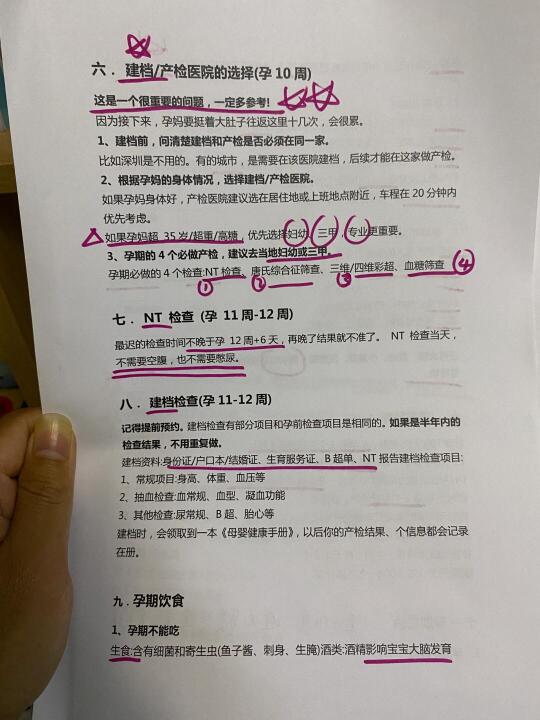 六．建档/产检医院的选择(孕 10 周)
这是一个很重要的问题，一定多参考!
因为接下来，孕妈要挺着大肚子往返这里十几次，会很累。
1、建档前，问清楚建档和产检是否必须在同一家。
比如深圳是不用的。有的城市，是需要在该医院建档，后续才能在这家做产检。
2、根据孕妈的身体情况，选择建档/产检医院。
如果孕妈身体好，产检医院建议选在居住地或上班地点附近，车程在 20 分钟内
优先考虑。
如果孕妈超 35 岁/超重/高糖，优先选择妇幼、三甲，专业更重要。
3、孕期的 4 个必做产检，建议去当地妇幼或三甲。
孕期必做的 4 个检查:NT 检查、唐氏综合征筛查、三维/四维彩超、血糖筛查 ④
① ② ③
七．NT 检查 (孕 11 周-12 周)
最迟的检查时间不晚于孕 12 周+6 天，再晚了结果就不准了。 NT 检查当天，
不需要空腹，也不需要憋尿。
八．建档检查(孕 11-12 周)
记得提前预约。建档检查有部分项目和孕前检查项目是相同的。如果是半年内的
检查结果，不用重复做。
建档资料:身份证/户口本/结婚证、生育服务证、B 超单、NT 报告建档检查项目:
1、常规项目:身高、体重、血压等
2、抽血检查:血常规、血型、凝血功能
3、其他检查:尿常规、B 超、胎心等
建档时，会领取到一本《母婴健康手册》，以后你的产检结果、个信息都会记录
在册。
九．孕期饮食
1、孕期不能吃
生食:含有细菌和寄生虫(鱼子酱、刺身、生腌)酒类:酒精影响宝宝大脑发育